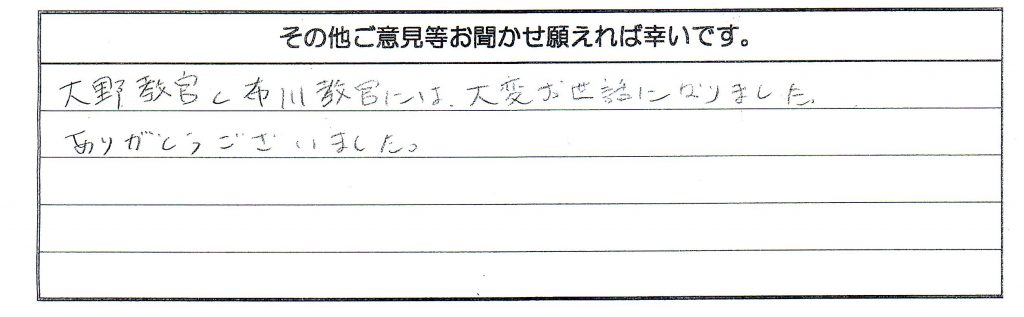 その他ご意見等お聞かせ願えれば幸いです。
大野教官と布川教官には、大変お世話になりました。
ありがとうございました。